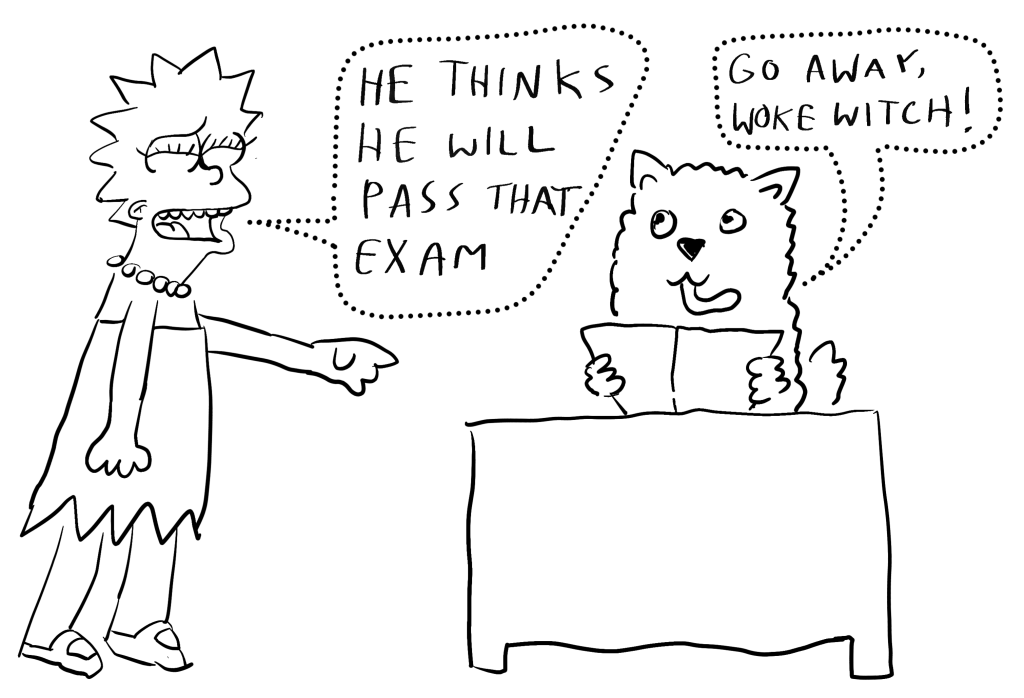 HE THINKS
HE WILL
PASS THAT
EXAM
GO AWAY,
WOKE WITCH!